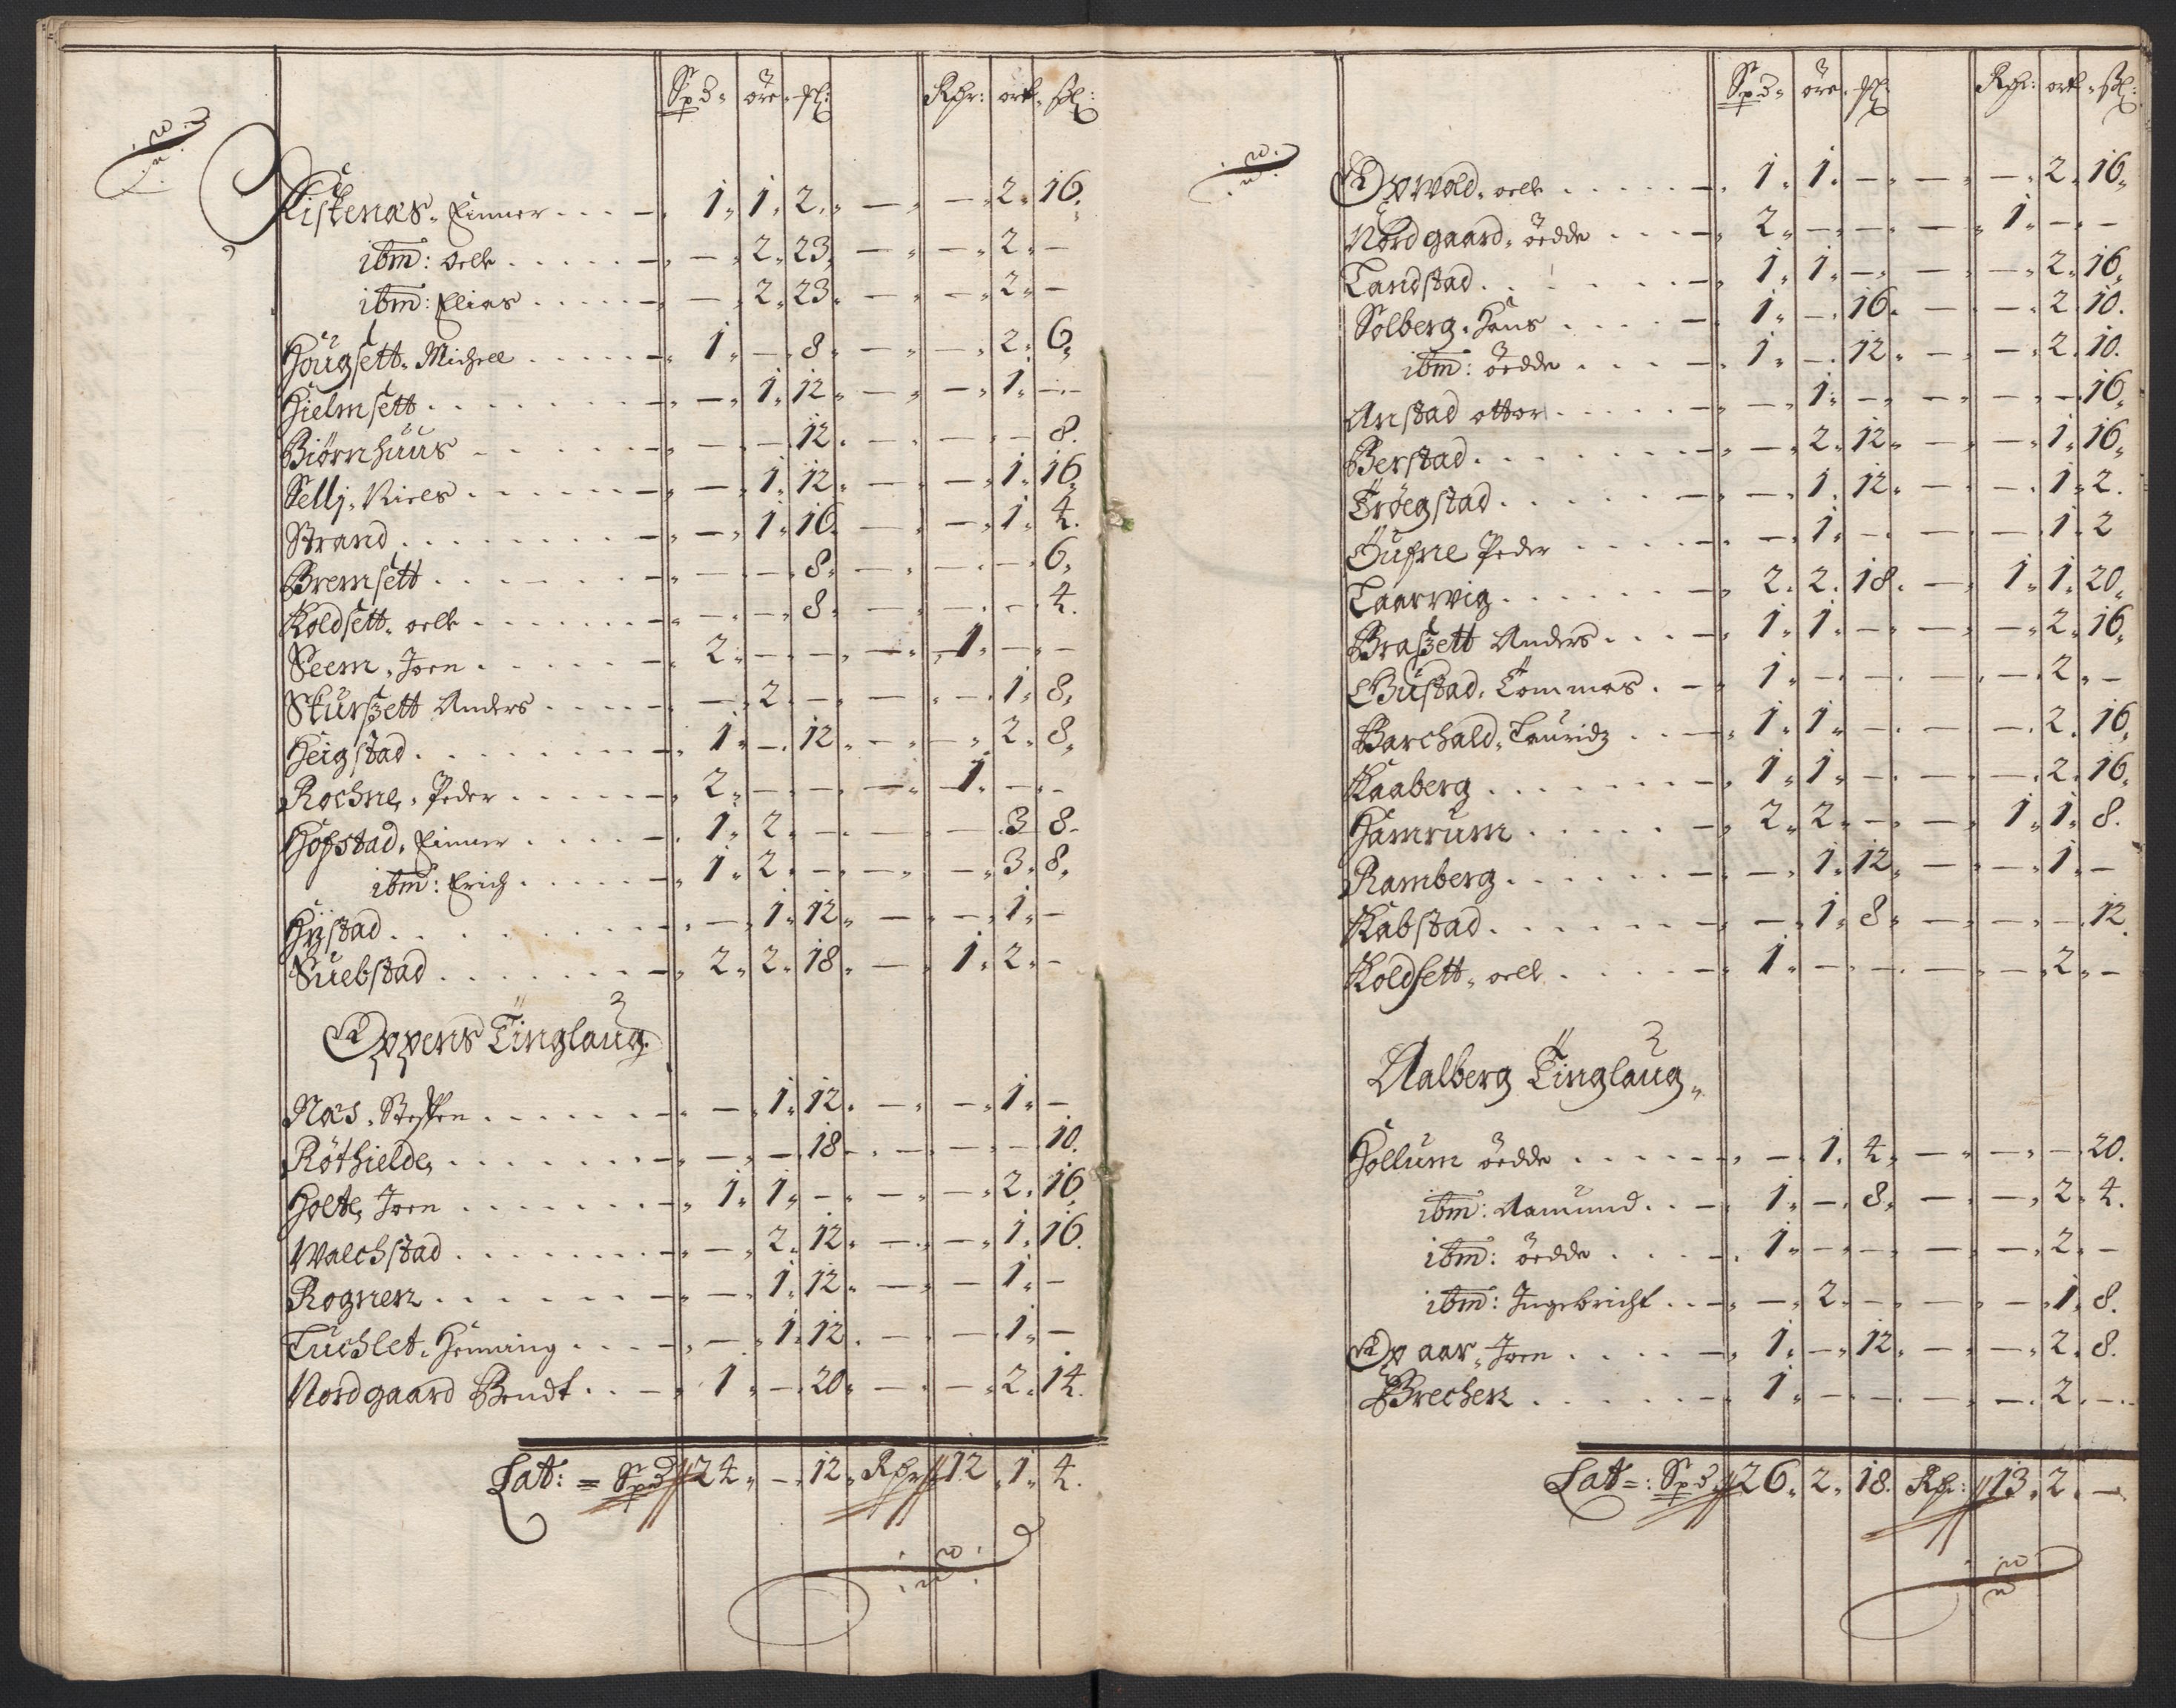 Spd, öre, ſl: Rdr: ort, ſl:
Kistenæs, Einner . . . - 1, 1, 2, - - 2, 16,
ibm: Oelle . . . . - - 2, 23, - - 2, -
ibm: Elias . . . . - - 2, 23, - - 2, -
Hougsett, Michell . . . . - 1, - 8, - - 2, 6,
Hielmsett . . . . . - - 1, 12, - - 1, -
Biörnhuus . . . . . - - - 12, - - - 8.
Sellj, Niels . . . . . - - 1, 12, - - 1, 16,
Strand . . . . . . - - 1, 16, - - 1, 4.
Bremsett . . . . . - - - 8, - - - 6,
Koldsett, oelle . . . . . - - - 8, - - - 4.
Seem, Joen . . . . . - 2, - - - 1, - -
Skurszett Anders . . . . - - 2, - - - 1, 8,
Heigstad . . . . . . - 1, - 12, - - 2, 8,
Rochne, Peder . . . . . - 2, - - - 1, - -
Hofstad, Einner . . . . - 1, 2, - - - 3, 8-
ibm: Erich . . . . - 1, 2, - - - 3, 8,
Hÿstad . . . . . . - - 1, 12, - - 1, -
Suebstad . . . . . . - 2, 2, 18, - 1, 2, -
Oppens Tinglaug.
Næs, Steffen . . . . . - - 1, 12, - - 1, -
Röthielde, . . . . . - - - 18 - - - 10.
Holte, Joen . . . . . - 1, 1, - - - 2, 16,
Walchstad . . . . . - - 2, 12, - - 1, 16.
Rognen . . . . . - - 1, 12, - - 1, -
Tuchlet, Henning . . . - - 1, 12, - - 1, -
Nordgaard Bendt . . - 1, - 20, - - 2, 14.
Lat: = Spd 24, - 12, Rdr 12, 1, 4.
Spd, öre, ſl: Rdr: ort, ſl:
Opwold, oelle . . . . . - 1, 1, - - - 2, 16,
Nordgaard, öedde . . . - 2, - - - 1, - -
Tandstad . . . . . - 1, 1, - - - 2, 16,
Solberg, Hans . . . . - 1, - 16, - - 2, 10.
ibm: öedde . . . - 1, - 12, - - 2, 10.
Anstad otter . . . . - - 1, - - - - 16,
Berstad . . . . . . - - 2, 12, - - 1, 16,
Tröegstad . . . . . - - 1, 12, - - 1, 2.
Öufne Peder . . . . - - 1, - - - 1, 2
Taarwig . . . . . . - 2, 2, 18, - 1, 1, 20,
Braszett Anders . . . - 1, 1, - - - 2, 16,
Bustad, Tommas . - 1, - - - - 2, -
Barchald, Lauridz . . - 1, 1, - - - 2, 16,
Kaaberg . . . . . . - 1, 1, - - - 2, 16,
Hamrum . . . . . - 2, 2, - - 1, 1, 8.
Ramberg . . . . . . - - 1, 12, - - 1, -
Kabstad . . . . . . - - 1, 8, - - - 12.
Koldsett, oelle . . . . - 1, - - - - 2, -
Aalberg Tinglaug,
Hollum öedde . . . . . - - 1, 4, - - - 20.
ibm: Aamund . . - 1, - 8, - - 2, 4.
ibm: öedde . . . . - 1, - - - - 2, -
ibm: Ingebricht . . - - 2, - - - 1, 8.
Op aar, Joen . . . . - 1, - 12, - - 2, 8.
Brechen . . . . . - 1, - - - - 2, -
Lat =: Spd 26, 2, 18. Rdr: 13, 2, -